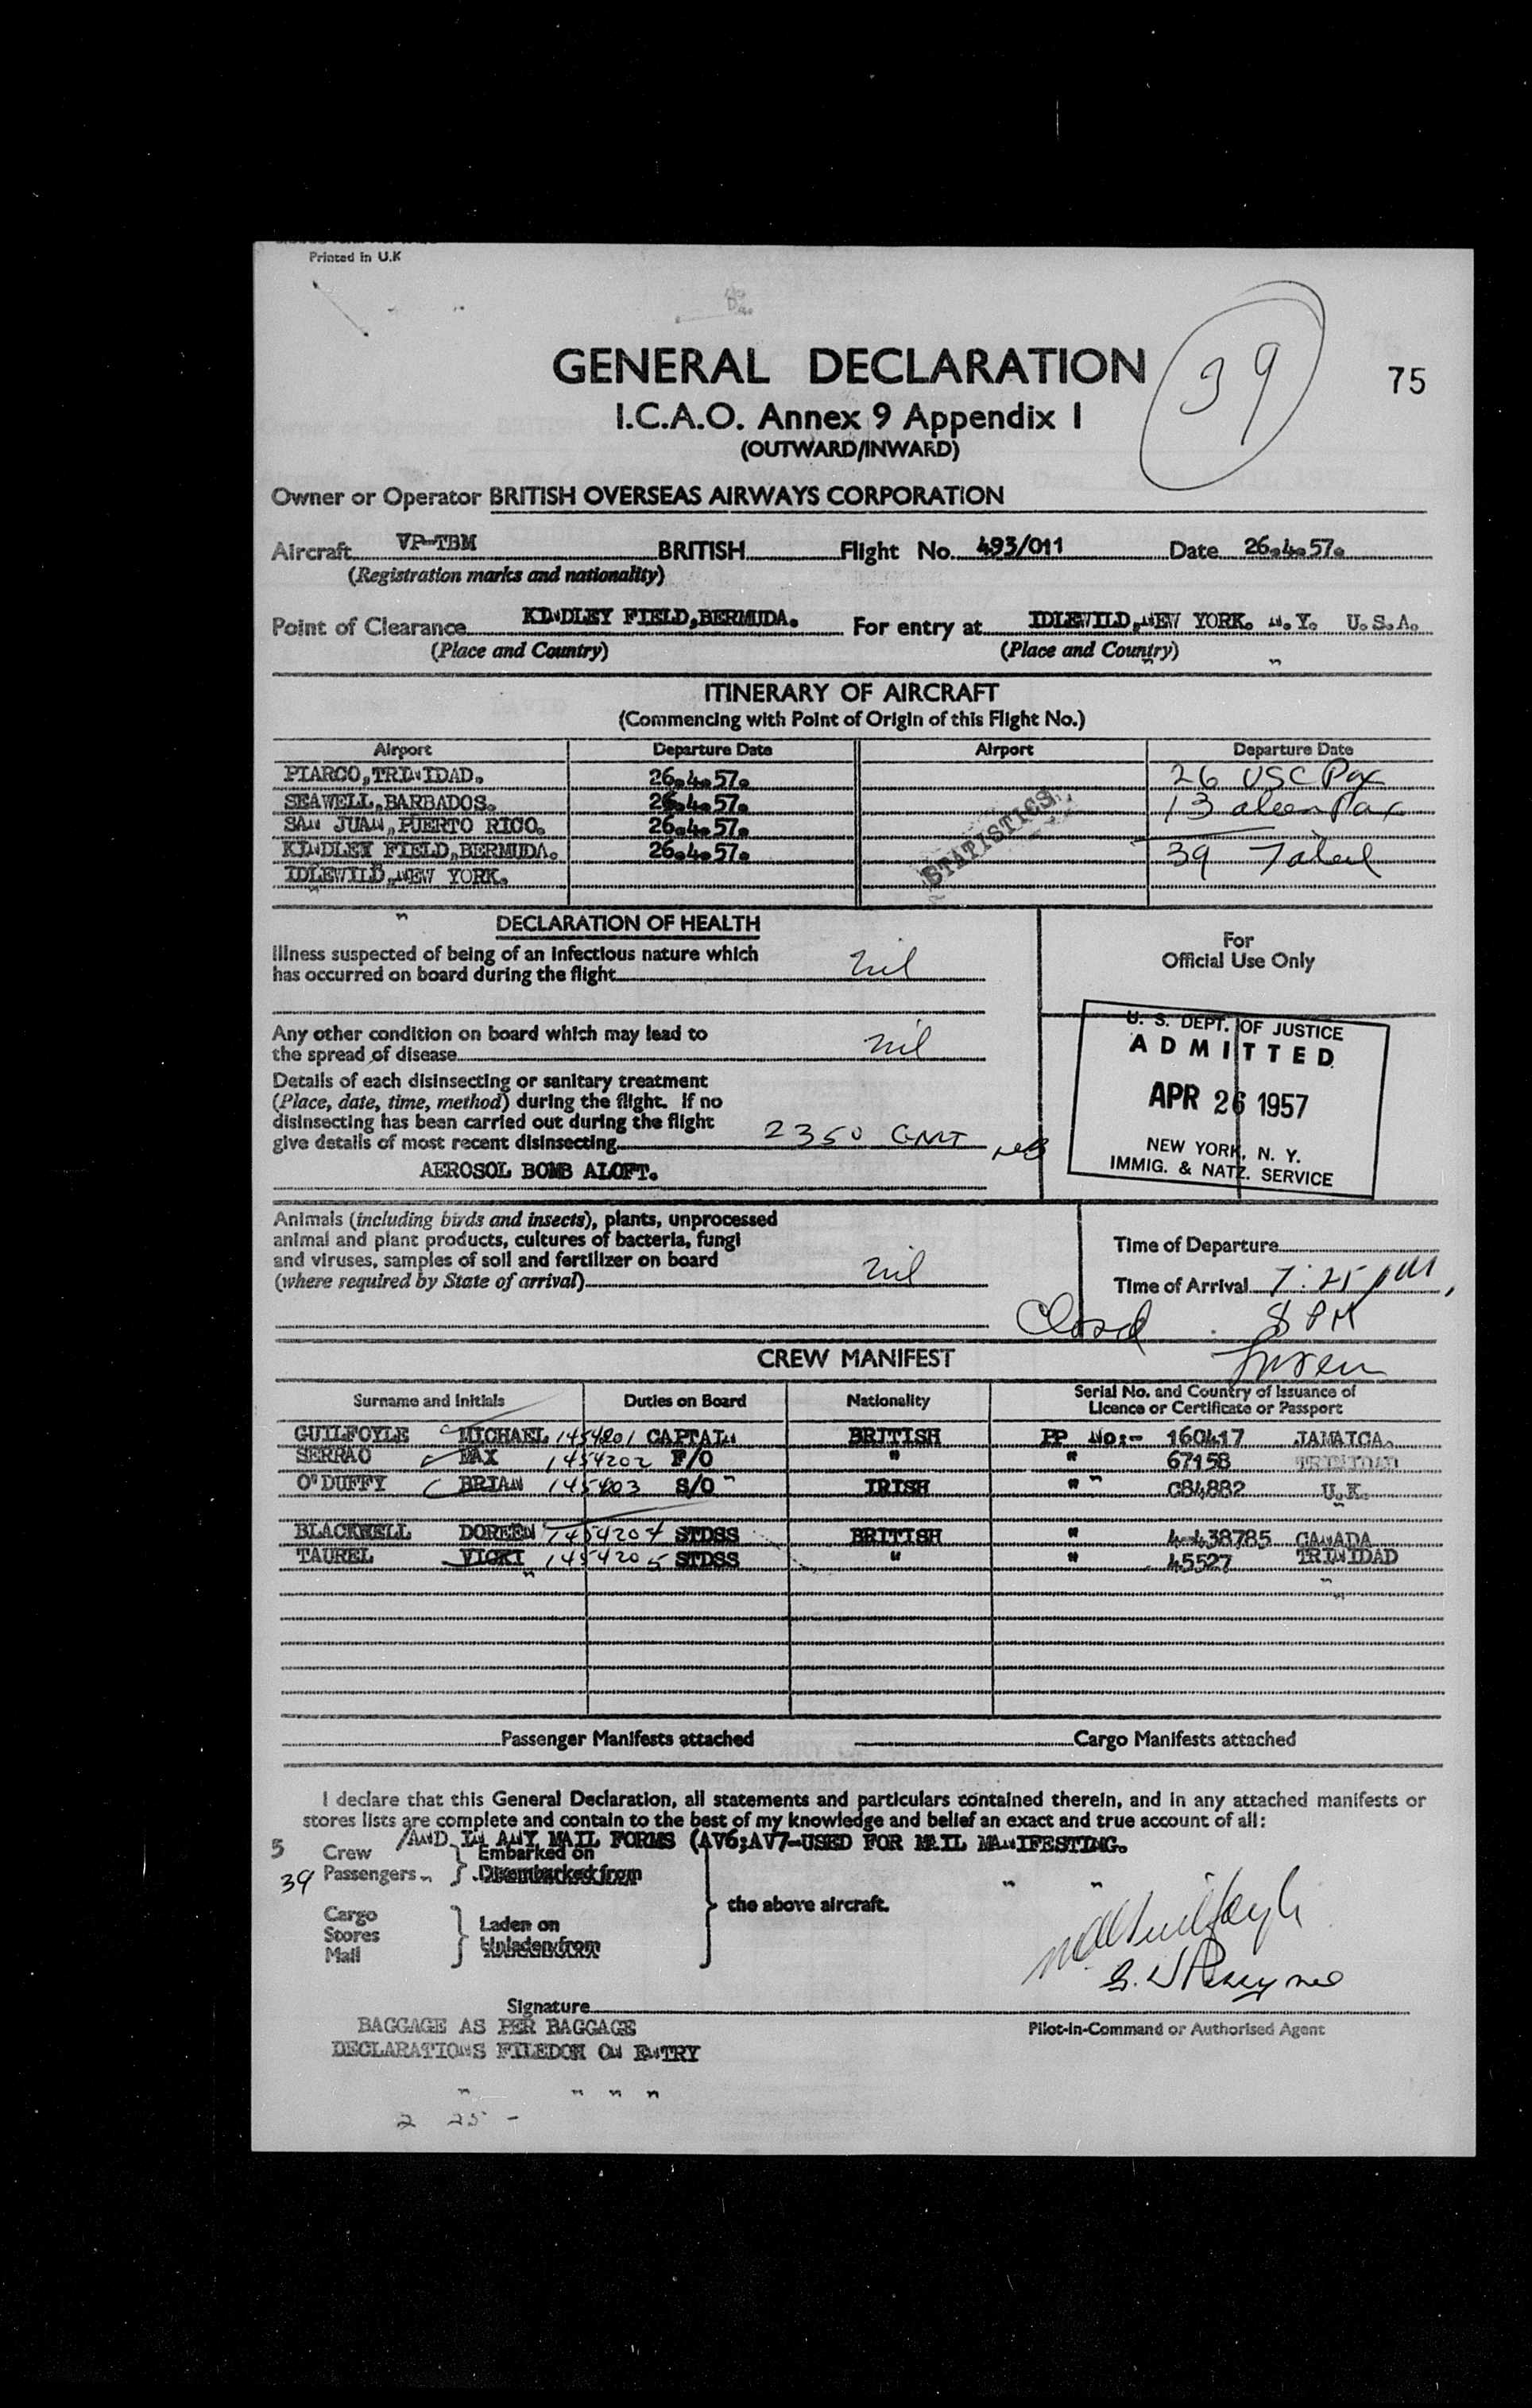 Printed in U.K
GENERAL DECLARATION
39
75
I.C.A.O. Annex 9 Appendix I
(OUTWARD/INWARD)
Owner or Operator BRITISH OVERSEAS AIRWAYS CORPORATION
Aircraft VP-TBM BRITISH Flight No. 493/011 Date 26.4.57.
(Registration marks and nationality)
Point of Clearance KINDLEY FIELD, BERMUDA. For entry at IDLEWILD, NEW YORK. N.Y. U.S.A.
(Place and Country) (Place and Country)
ITINERARY OF AIRCRAFT
(Commencing with Point of Origin of this Flight No.)
Airport Departure Date Airport Departure Date
PIARCO, TRINIDAD. 26.4.57. 26 USC Pax
SEAWELL, BARBADOS. 26.4.57. 13 alien Pax
SAN JUAN, PUERTO RICO. 26.4.57.
KINDLEY FIELD, BERMUDA. 26.4.57. 39 Total
IDLEWILD, NEW YORK.
STATISTICS
DECLARATION OF HEALTH
For
Official Use Only
Illness suspected of being of an infectious nature which
has occurred on board during the flight nil
Any other condition on board which may lead to
the spread of disease nil
Details of each disinsecting or sanitary treatment
(Place, date, time, method) during the flight. If no
disinsecting has been carried out during the flight
give details of most recent disinsecting 2350 GMT
AEROSOL BOMB ALOFT.
U. S. DEPT. OF JUSTICE
ADMITTED
APR 26 1957
NEW YORK, N. Y.
IMMIG. & NATZ. SERVICE
Animals (including birds and insects), plants, unprocessed
animal and plant products, cultures of bacteria, fungi
and viruses, samples of soil and fertilizer on board
(where required by State of arrival) nil
Time of Departure
Time of Arrival 7:25 pm
Closed 8 PM
CREW MANIFEST
Surname and Initials Duties on Board Nationality Serial No. and Country of Issuance of
Licence or Certificate or Passport
GUILFOYLE MICHAEL 1454201 CAPTAIN BRITISH PP No:- 160417 JAMAICA.
SERRAO MAX 1454202 F/O " " 67158 TRINIDAD
O'DUFFY BRIAN 145403 S/O IRISH " C84882 U.K.
BLACKWELL DOREEN 1454204 STDSS BRITISH " 4-438785 CANADA
TAUREL VICKI 1454205 STDSS " " 45527 TRINIDAD
Passenger Manifests attached Cargo Manifests attached
I declare that this General Declaration, all statements and particulars contained therein, and in any attached manifests or
stores lists are complete and contain to the best of my knowledge and belief an exact and true account of all:
/AND IN ANY MAIL FORMS (AV6;AV7-USED FOR MAIL MANIFESTING.
5 Crew Embarked on
39 Passengers Disembarked from
the above aircraft.
Cargo
Stores Laden on
Mail Unladen from
Signature
Pilot-in-Command or Authorised Agent
BAGGAGE AS PER BAGGAGE
DECLARATIONS FILEDON ON ENTRY
2 25 -